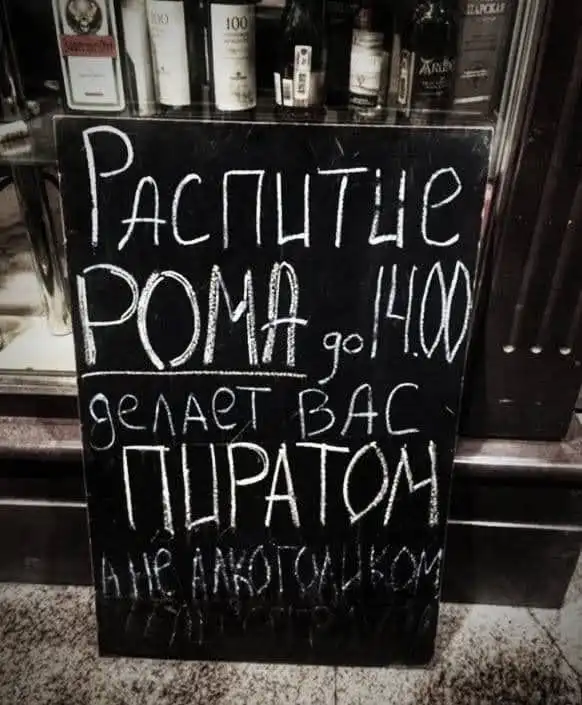 100
100
ЦАРСКАЯ
ARDBEG
РАСПИТИЕ
РОМА до 14.00
делает ВАС
ПИРАТОМ
А НЕ АЛКОГОЛИКОМ